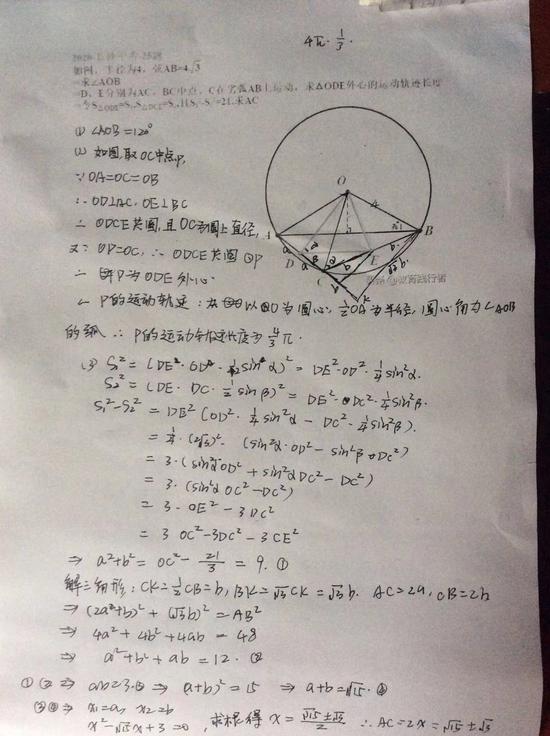 4π·1/3.
2020长沙中考25题
如图,半径为4,弦AB=4√3
求∠AOB
D、E分别为AC、BC中点,C在劣弧AB上运动,求△ODE外心的运动轨迹长度
令S△ODE=S₁,S△DCE=S₂,且S₁²-S₂²=21,求AC
(1) ∠AOB=120°
(2) 如图,取OC中点P,
∵OA=OC=OB
∴OD⊥AC,OE⊥BC
∴ODCE共圆,且OC为圆上直径,
又∵OP=OC,∴ODCE共圆⊙P
∴P为ODE外心
P的运动轨迹:为以O为圆心,½OA为半径,圆心角为∠AOB
的弧 ∴P的运动轨迹长度为4/3 π.
O
A
B
D
C
E
K
(3) S₁²=(DE·OD·½sinα)²=DE²·OD²·¼sin²α.
S₂²=(DE·DC·½sinβ)²=DE²·DC²·¼sin²β.
S₁²-S₂²=DE²(OD²·¼sin²α-DC²·¼sin²β).
=¼·(2√3)²·(sin²α·OD²-sin²β·DC²)
=3·(sin²α·OD²+sin²αDC²-DC²)
=3·(sin²αOC²-DC²)
=3·OE²-3DC²
=3OC²-3DC²-3CE²
⇒ a²+b²=OC²-21/3=9.①
解三角形:CK=½CB=b,BK=√3CK=√3b. AC=2a,CB=2b
⇒(2a+b)²+(√3b)²=AB²
⇒ 4a²+4b²+4ab=48
⇒ a²+b²+ab=12.②
①②⇒ ab=3.③ ⇒(a+b)²=15 ⇒ a+b=√15.④
③④⇒ x₁=a, x₂=b
x²-√15x+3=0,求根得 x=(√15±√3)/2 ∴AC=2x=√15±√3